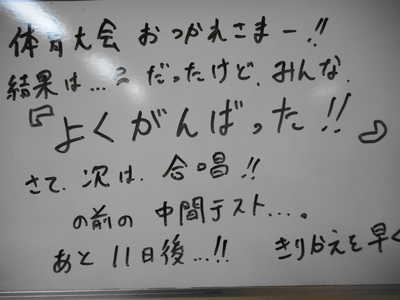 体育大会 おつかれさまー!!
結果は...? だったけど、みんな、
『よくがんばった!!』
さて、次は、合唱!!
の前の 中間テスト...。
あと 11日後...!! きりかえを早く